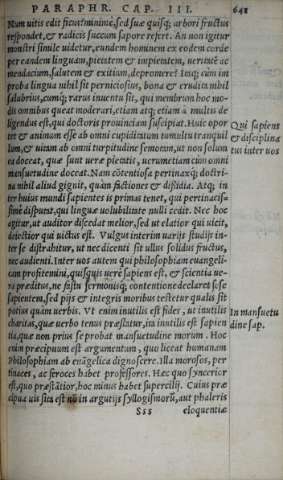 PARAPHR. CAP. III. 641
Nam uitis edit ficus minime, sed suæ quisq; arbori fructus
respondet, & radicis succum sapore refert. An non igitur
monstri simile uidetur, eundem hominem ex eodem corde
per eandem linguam, pietatem & impietatem, ueritatē ac
mendacium, salutem & exitium, depromere? Imò, cùm im
proba lingua nihil sit perniciosius, bona & erudita nihil
salubrius, cumq; rarus inuentu sit, qui membrum hoc mo-
dis omnibus queat moderari, etiam atq; etiam à multis de
ligendus est, qui doctoris prouinciam suscipiat. Huic opor
tet & animum esse ab omni cupiditatum tumultu tranquil
lum, & uitam ab omni turpitudine semotam, ut non solum
ea doceat, quæ sunt uerè pietatis, uerumetiam cùm omni
mansuetudine doceat. Nam cōtentiosa pertinaxq; doctri-
na nihil aliud gignit, quàm factiones & dissidia. Atq; in
ter huius mundi sapientes is primas tenet, qui pertinacis-
simè disputat, qui linguæ uolubilitate nulli cedit. Nec hoc
agitur, ut auditor discedat melior, sed ut elatior qui uicit,
deiectior qui uictus est. Vulgus interim uarijs studijs in-
ter se distrahitur, ut nec dicenti sit ullus solidus fructus,
nec audienti. Inter uos autem qui philosophiam euangeli-
cam profitemini, quisquis uerè sapiens est, & scientia ue-
ra præditus, ne fastu sermonisq; contentione declaret se se
sapientem, sed pijs & integris moribus testetur qualis sit
potius quàm uerbis. Vt enim inutilis est fides, ut inutilis
charitas, quæ uerbo tenus præstatur, ita inutilis est sapien
tia, quæ non prius se probat mansuetudine morum. Hoc
enim præcipuum est argumentum, quo liceat humanam
Philosophiam ab euāgelica dignoscere. Illa morosos, per
tinaces, ac feroces habet professores. Hæc quo syncerior
est, quo præstātior, hoc minus habet supercilij. Cuius præ
cipua uis sita est nō in argutijs syllogismorū, aut phaleris
Sss eloquentiæ
Qui sapiens
& disciplina
tus inter uos
In mansuetu
dine sap.